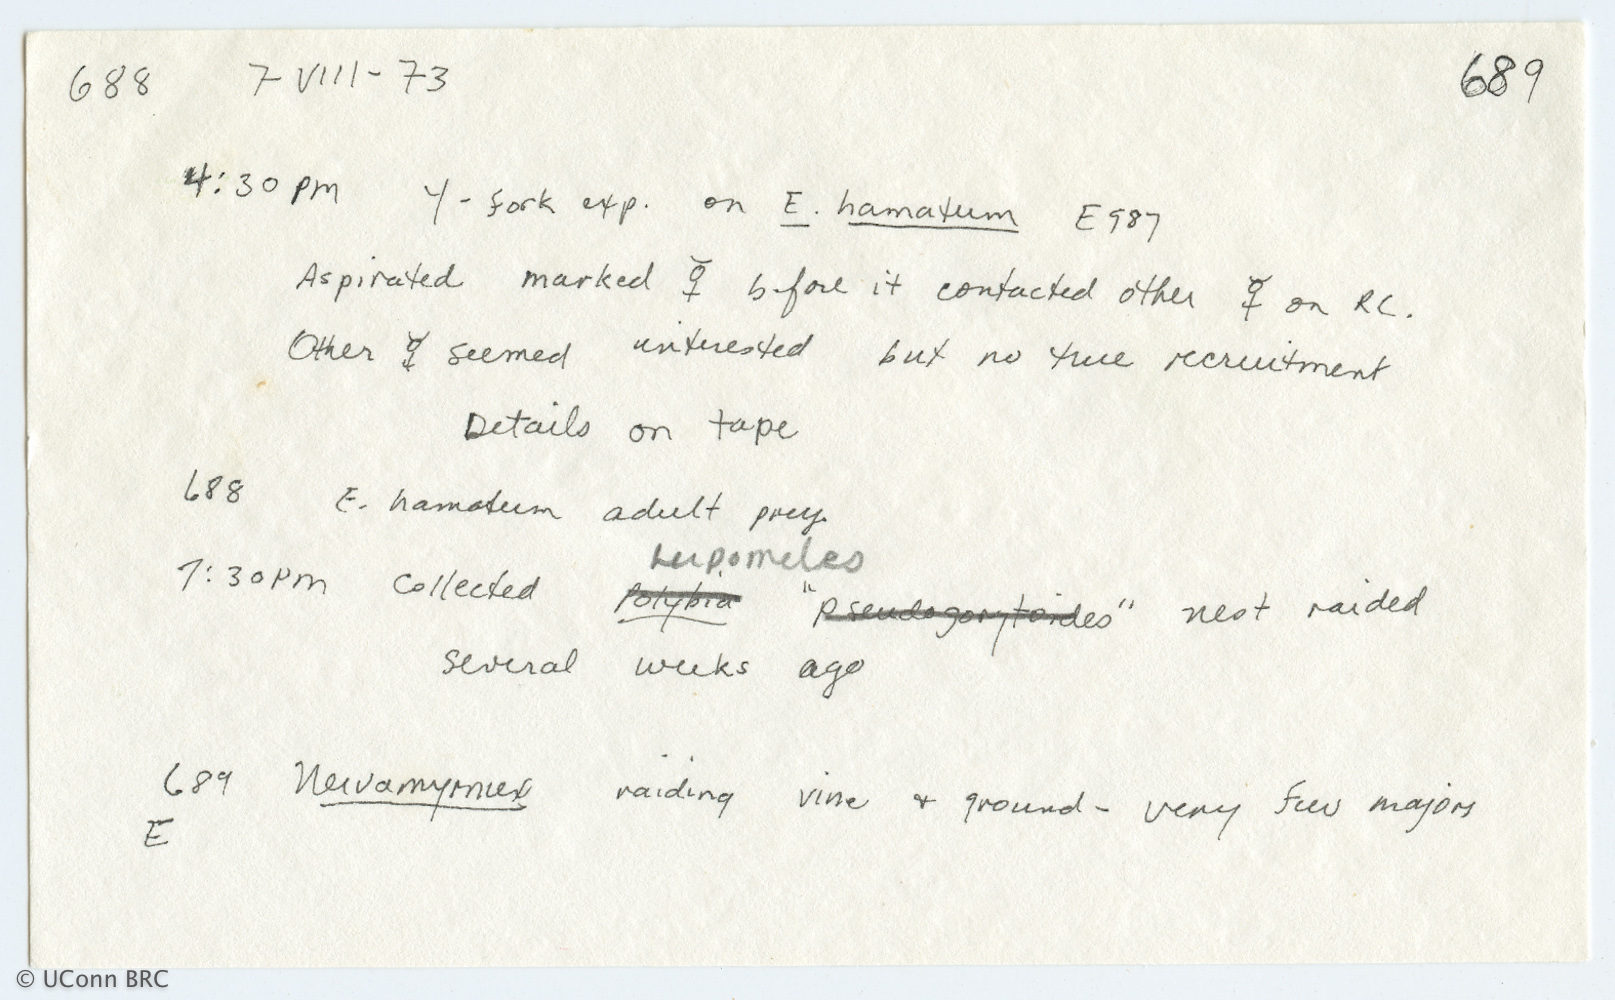 688 7-VIII-73 689
4:30 pm Y-fork exp. on E. hamatum E987
Aspirated marked ☿ before it contacted other ☿ on RC.
Other ☿ seemed interested but no true recruitment
Details on tape
688 E. hamatum adult prey.
Leipomeles
7:30pm Collected Polybia "pseudogorytoides" nest raided
several weeks ago
689 Neivamyrmex raiding vine + ground - very few majors
E
© UConn BRC